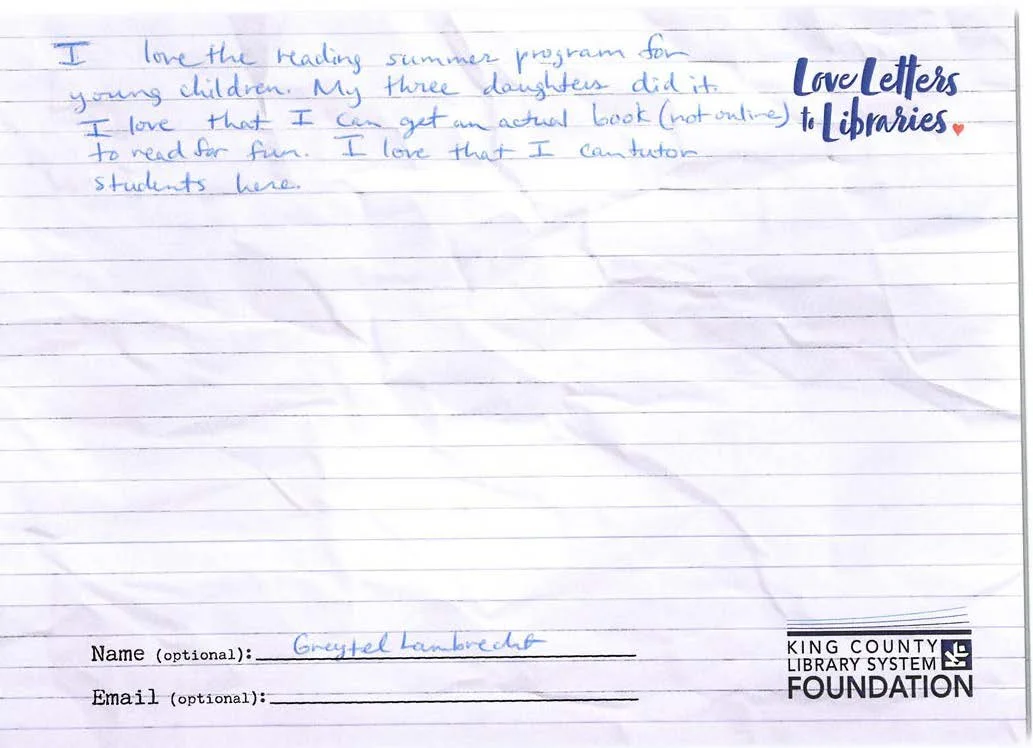 I love the reading summer program for
young children. My three daughters did it.
I love that I can get an actual book (not online)
to read for fun. I love that I can tutor
students here.
Love Letters
to Libraries
Name (optional): Greytel Lambrecht
Email (optional):
KING COUNTY
LIBRARY SYSTEM
FOUNDATION